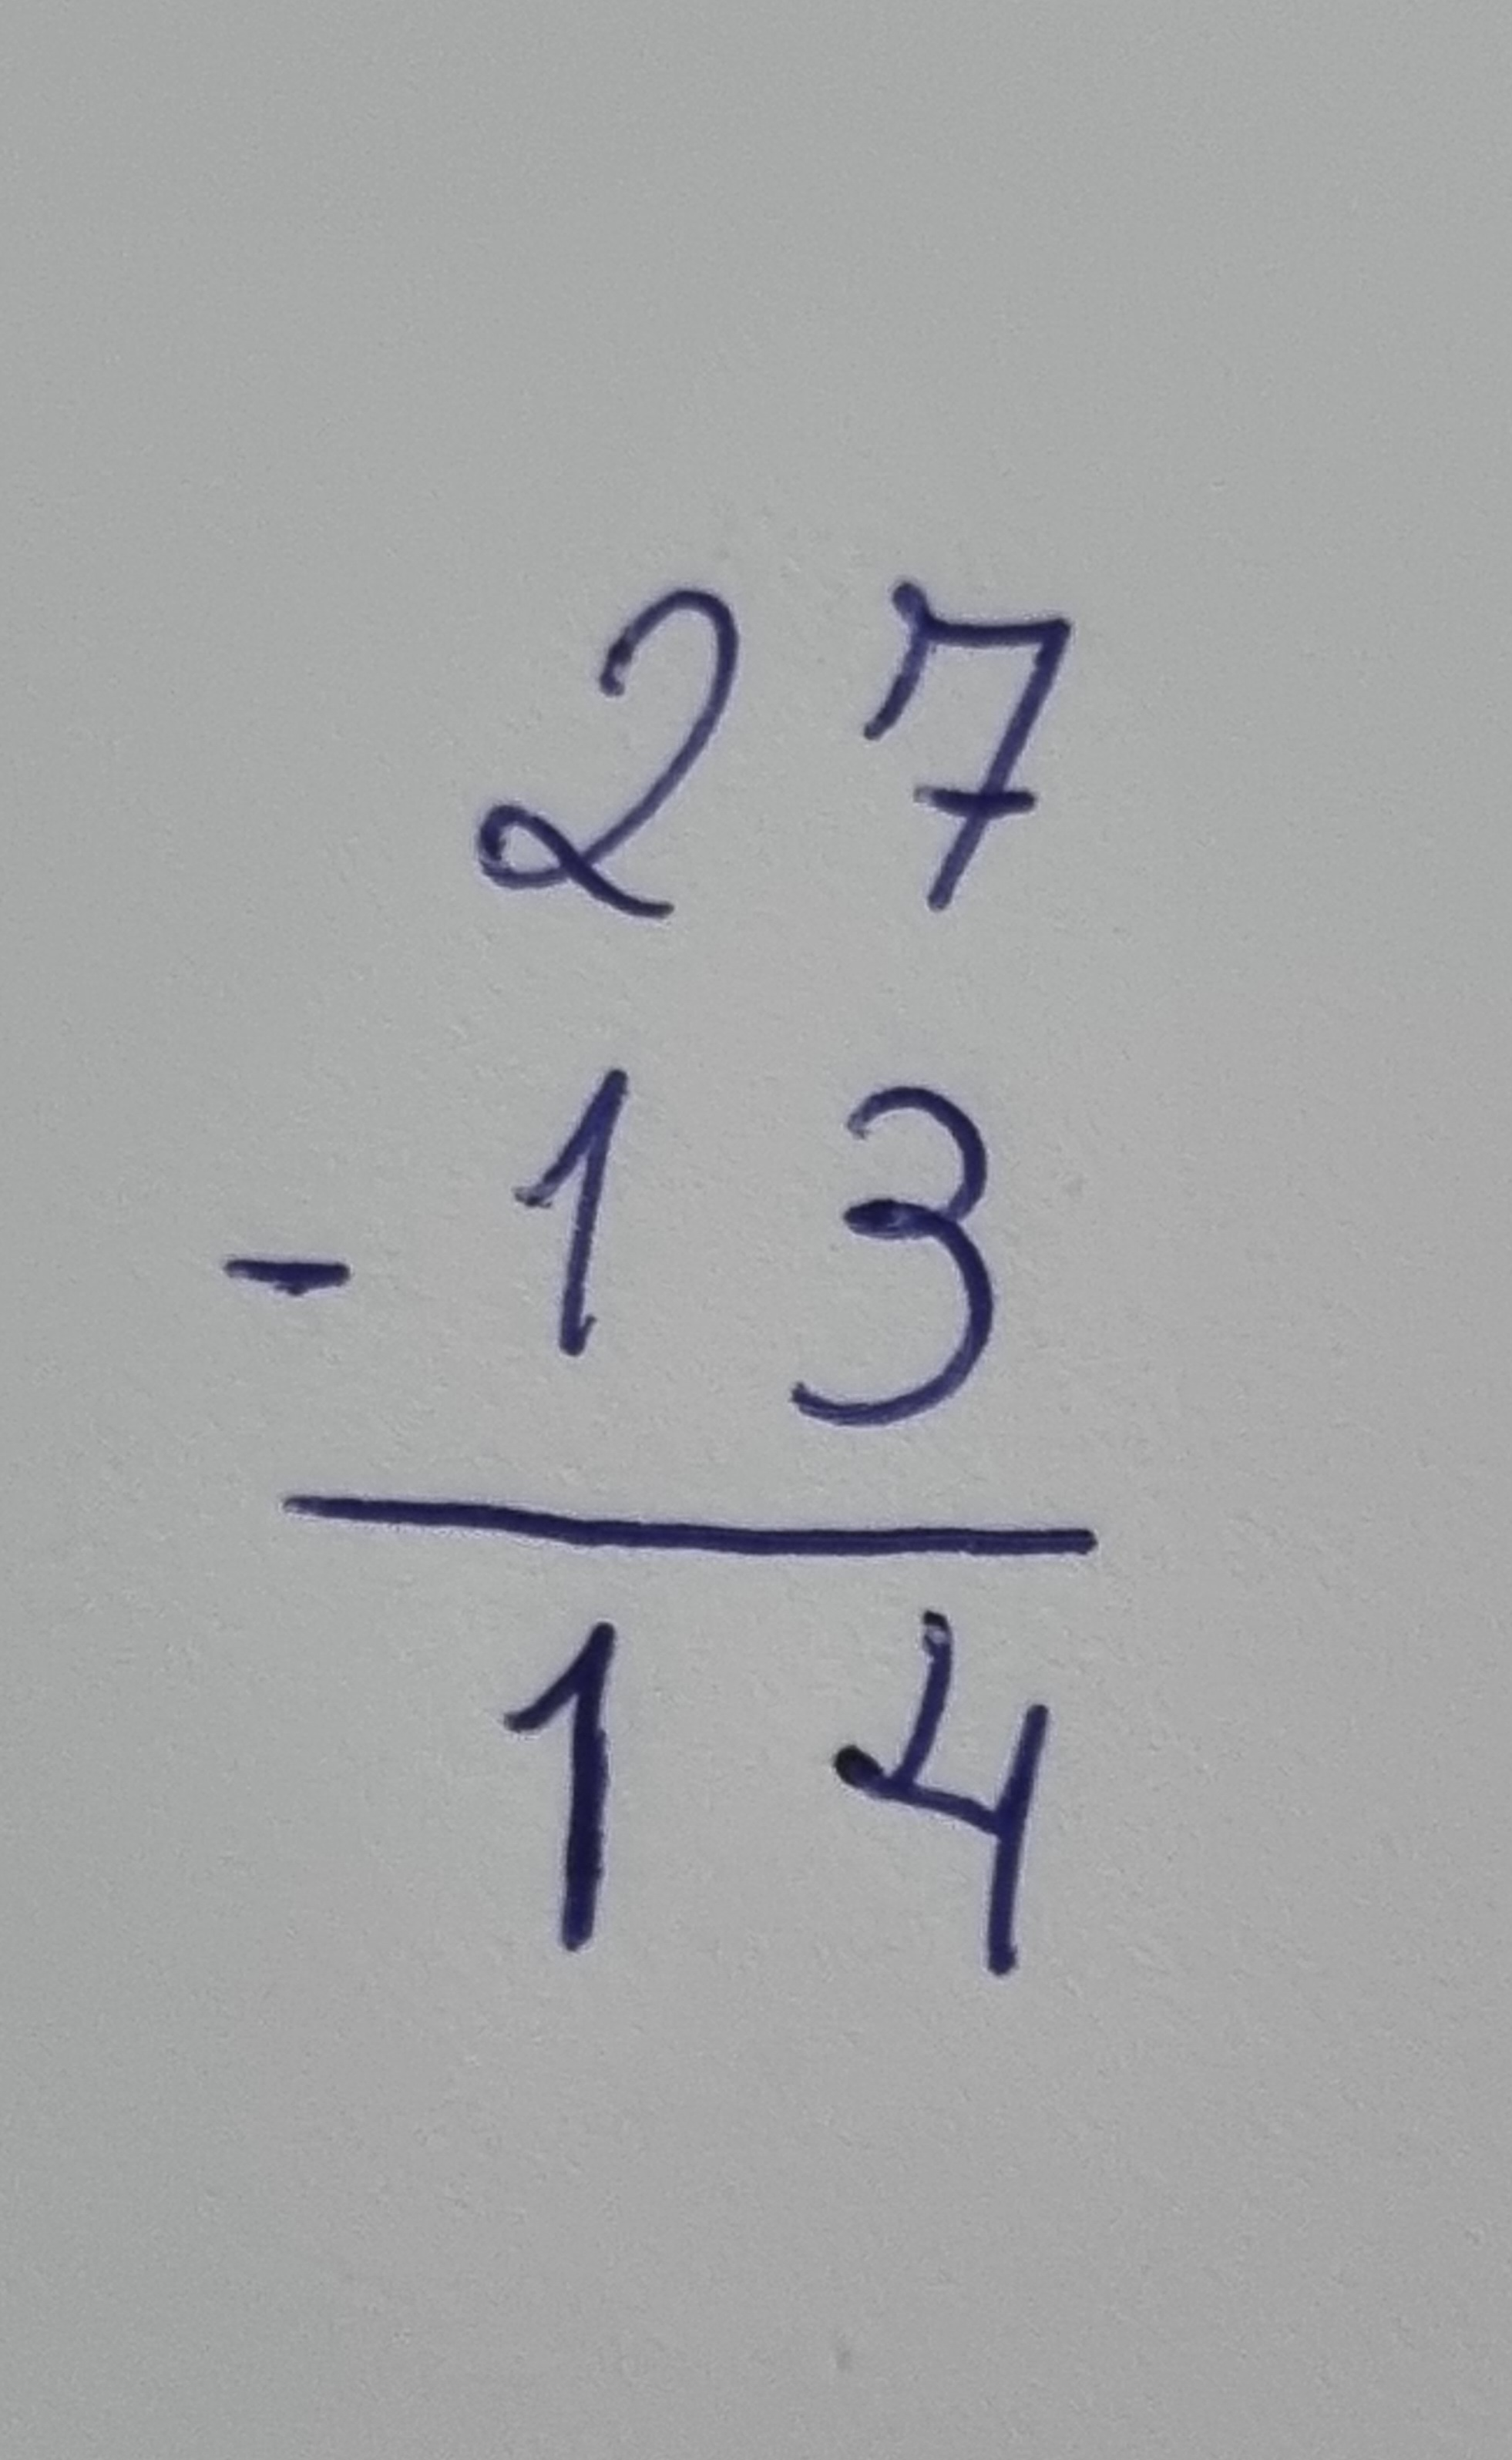 27
- 13
14